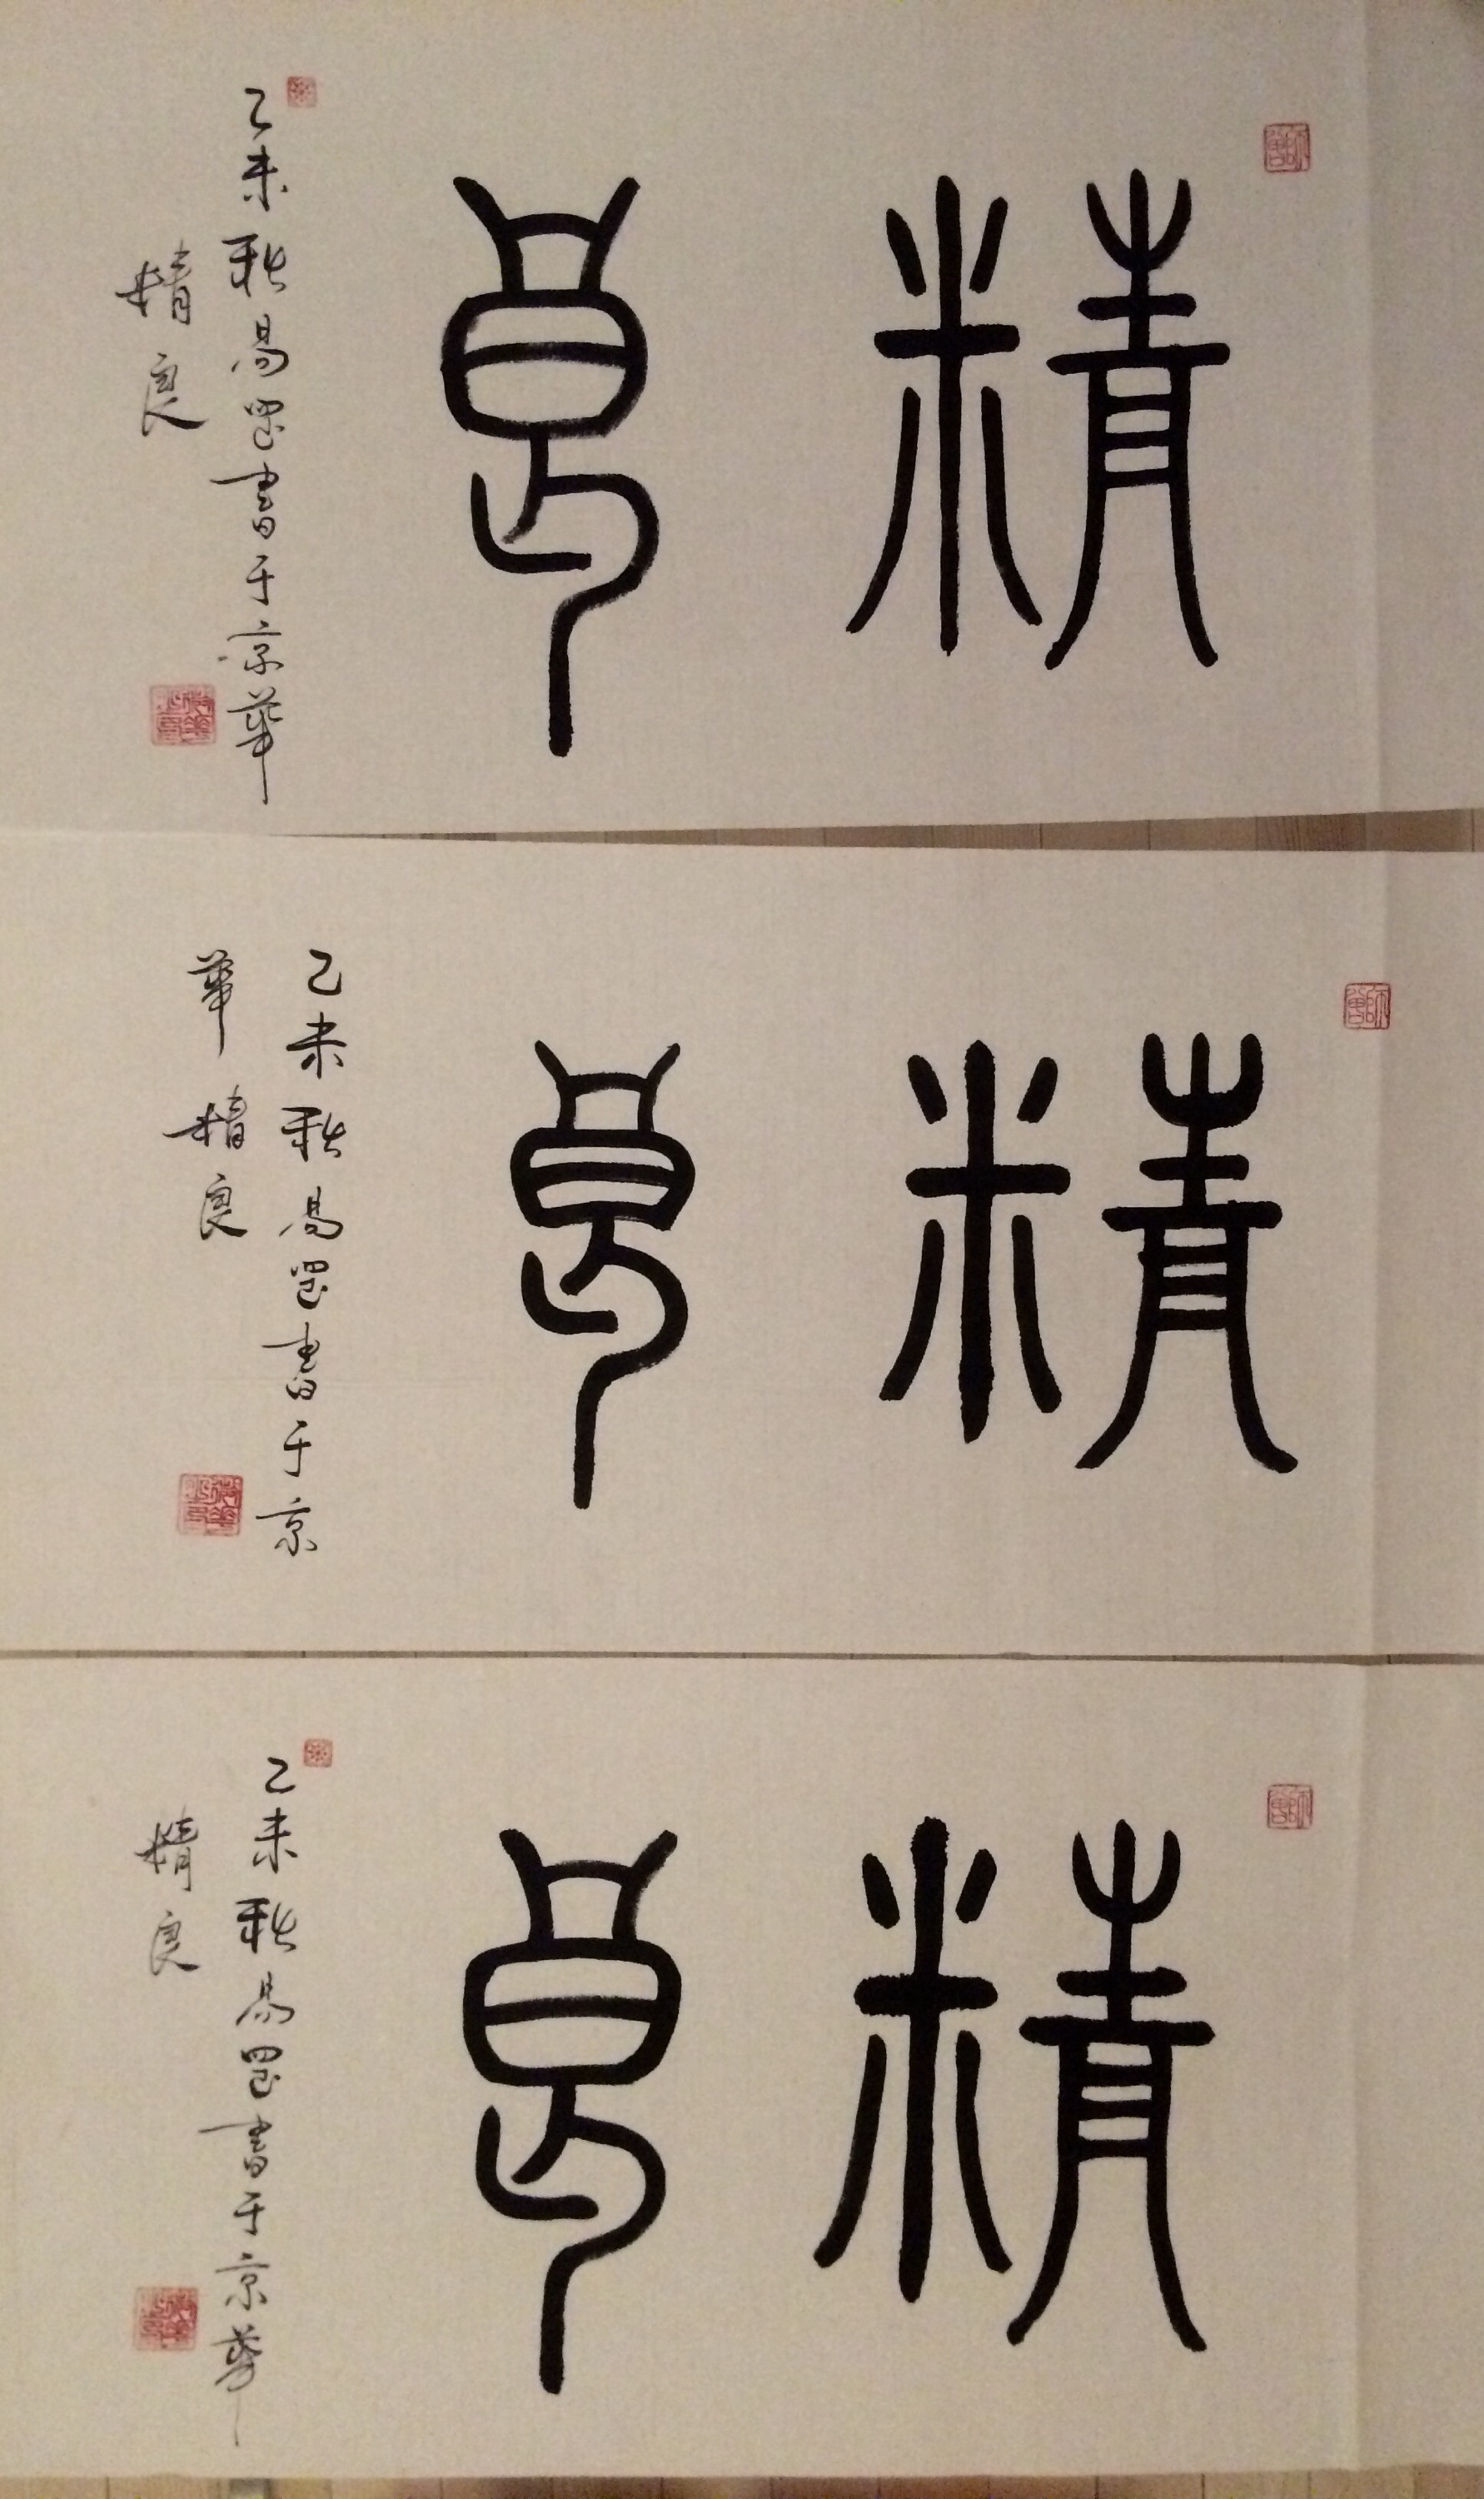 精良
乙未秋易墨書于京華
精良
精良
乙未秋易墨書于京
華 精良
精良
乙未秋易墨書于京華
精良